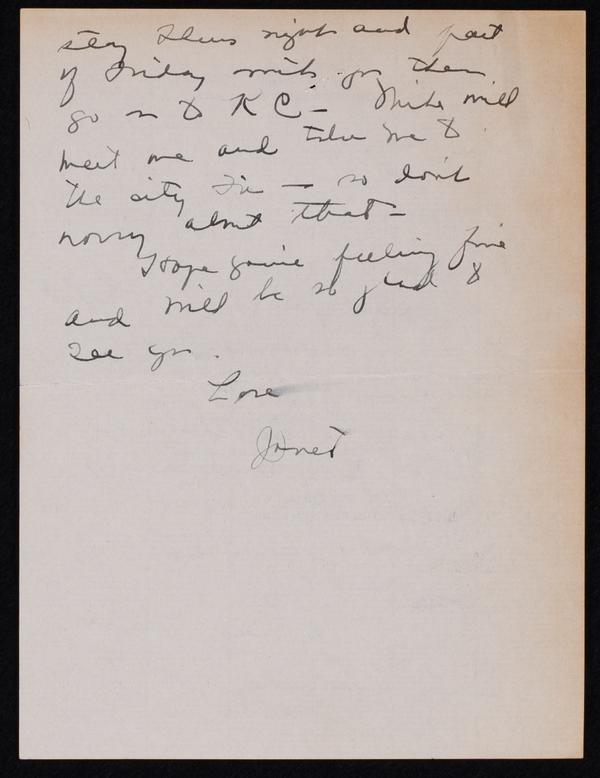 stay Thurs night and part
of Friday with you then
go on to K C - Mike will
meet me and take me to
the city Fri - so don't
worry about that -
Hope you're feeling fine
and will be so glad to
see you.
Love
Janet